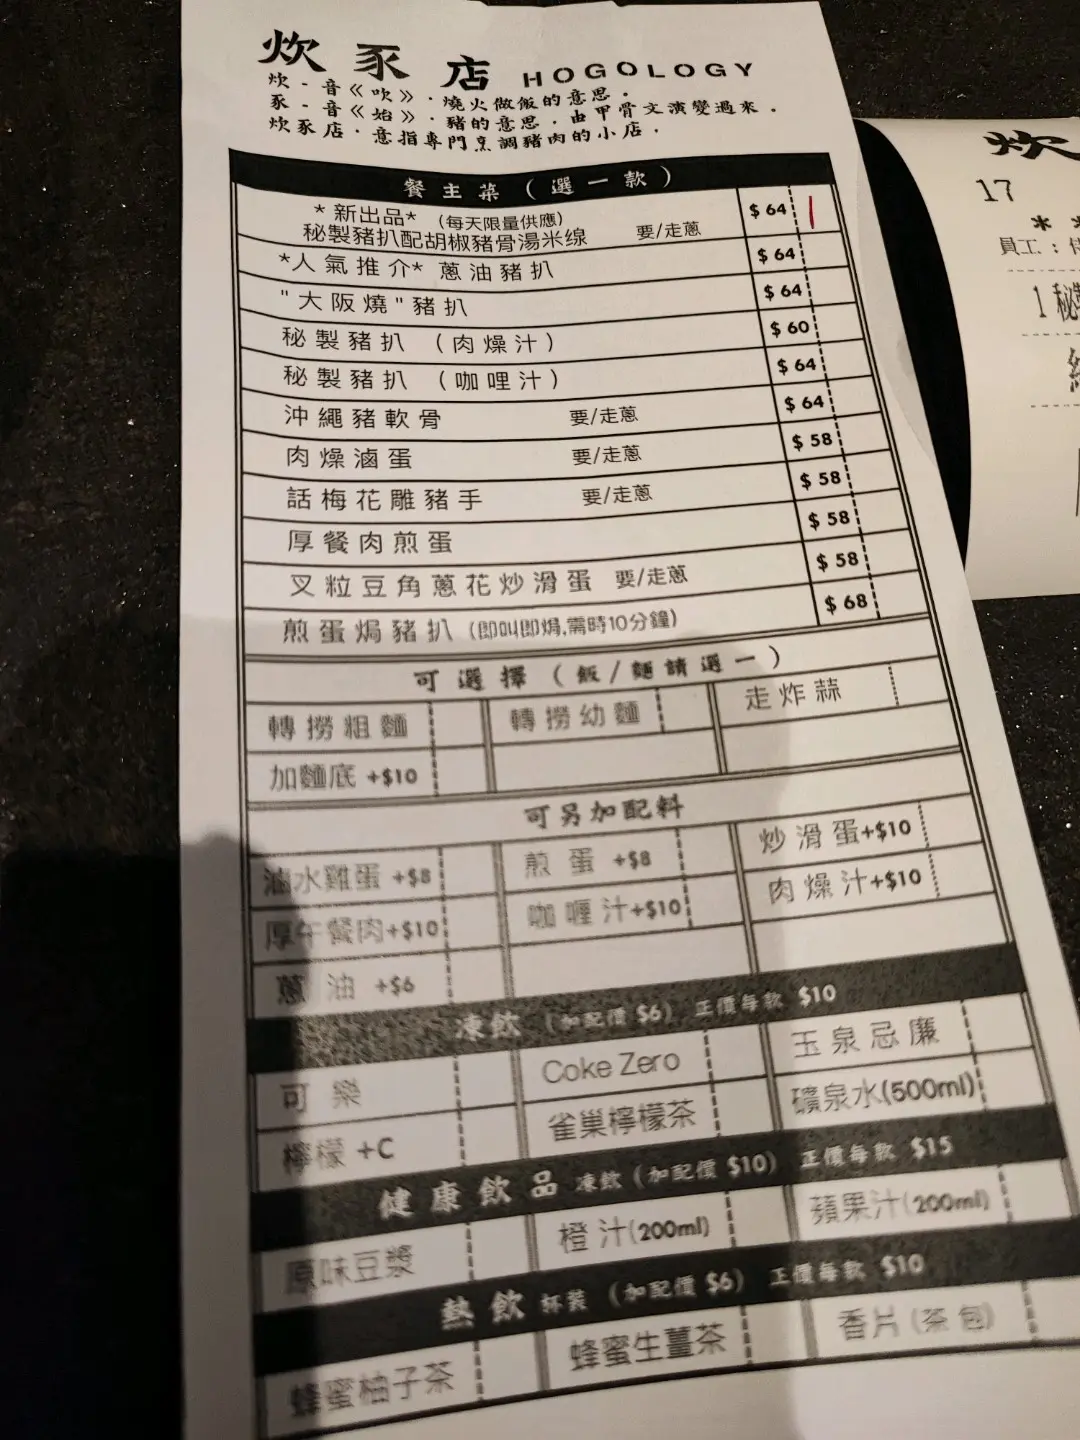 炊豕店 HOGOLOGY
炊 - 音《吹》. 燒火做飯的意思.
豕 - 音《始》. 豬的意思. 由甲骨文演變過來.
炊豕店. 意指專門烹調豬肉的小店.
餐主菜（選一款）
*新出品* （每天限量供應）
秘製豬扒配胡椒豬骨湯米线 要/走蔥 $64
*人氣推介* 蔥油豬扒 $64
"大阪燒"豬扒 $64
秘製豬扒 （肉燥汁） $60
秘製豬扒 （咖哩汁） $64
沖繩豬軟骨 要/走蔥 $64
肉燥滷蛋 要/走蔥 $58
話梅花雕豬手 要/走蔥 $58
厚餐肉煎蛋 $58
叉粒豆角蔥花炒滑蛋 要/走蔥 $58
煎蛋焗豬扒 (即叫即焗,需時10分鐘) $68
可選擇（飯/麵請選一）
轉撈粗麵 轉撈幼麵 走炸蒜
加麵底 +$10
可另加配料
滷水雞蛋 +$8 煎蛋 +$8 炒滑蛋+$10
厚午餐肉+$10 咖喱汁+$10 肉燥汁+$10
蔥油 +$6
凍飲 (加配價 $6) 正價每款 $10
可樂 Coke Zero 玉泉忌廉
檸檬 +C 雀巢檸檬茶 礦泉水(500ml)
健康飲品 凍飲 (加配價 $10) 正價每款 $15
原味豆漿 橙汁(200ml) 蘋果汁(200ml)
熱飲 杯裝 (加配價 $6) 正價每款 $10
蜂蜜柚子茶 蜂蜜生薑茶 香片 (茶包)
炊
17
* *
員工 :
1 秘